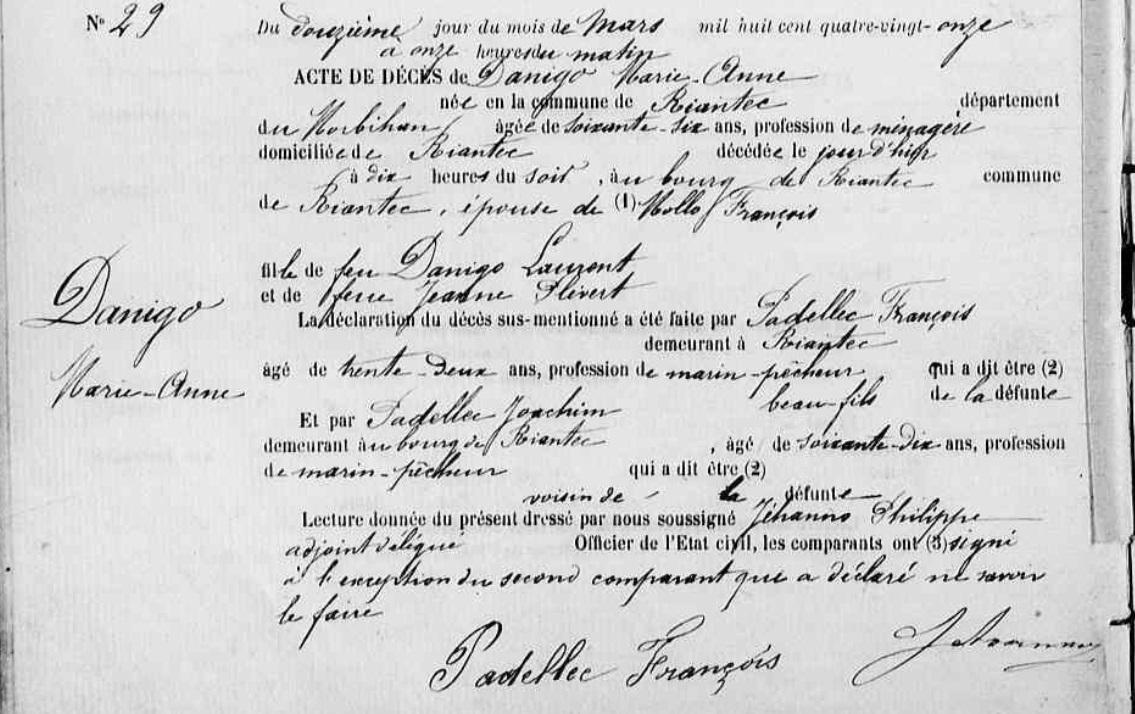 N° 29
Du douzième jour du mois de Mars mil huit cent quatre-vingt-onze
à onze heures du matin
ACTE DE DÉCÈS de Danigo Marie-Anne
née en la commune de Riantec département
du Morbihan, âgée de soixante-six ans, profession de ménagère
domiciliée de Riantec décédée le jour d'hier
à dix heures du soir, au bourg de Riantec commune
de Riantec, épouse de (1) Mollo François
fille de feu Danigo Laurent
et de feue Jeanne Plévert
Danigo
Marie-Anne
La déclaration du décès sus-mentionné a été faite par Padellec François
demeurant à Riantec
âgé de trente-deux ans, profession de marin-pêcheur qui a dit être (2)
beau-fils de la défunte
Et par Padellec Joachim
demeurant au bourg de Riantec, âgé de soixante-dix ans, profession
de marin-pêcheur qui a dit être (2)
voisin de la défunte
Lecture donnée du présent dressé par nous soussigné Jéhanno Philippe
adjoint délégué Officier de l'Etat civil, les comparants ont (3) signé
à l'exception du second comparant que a déclaré ne savoir
le faire
Padellec François Jehanno